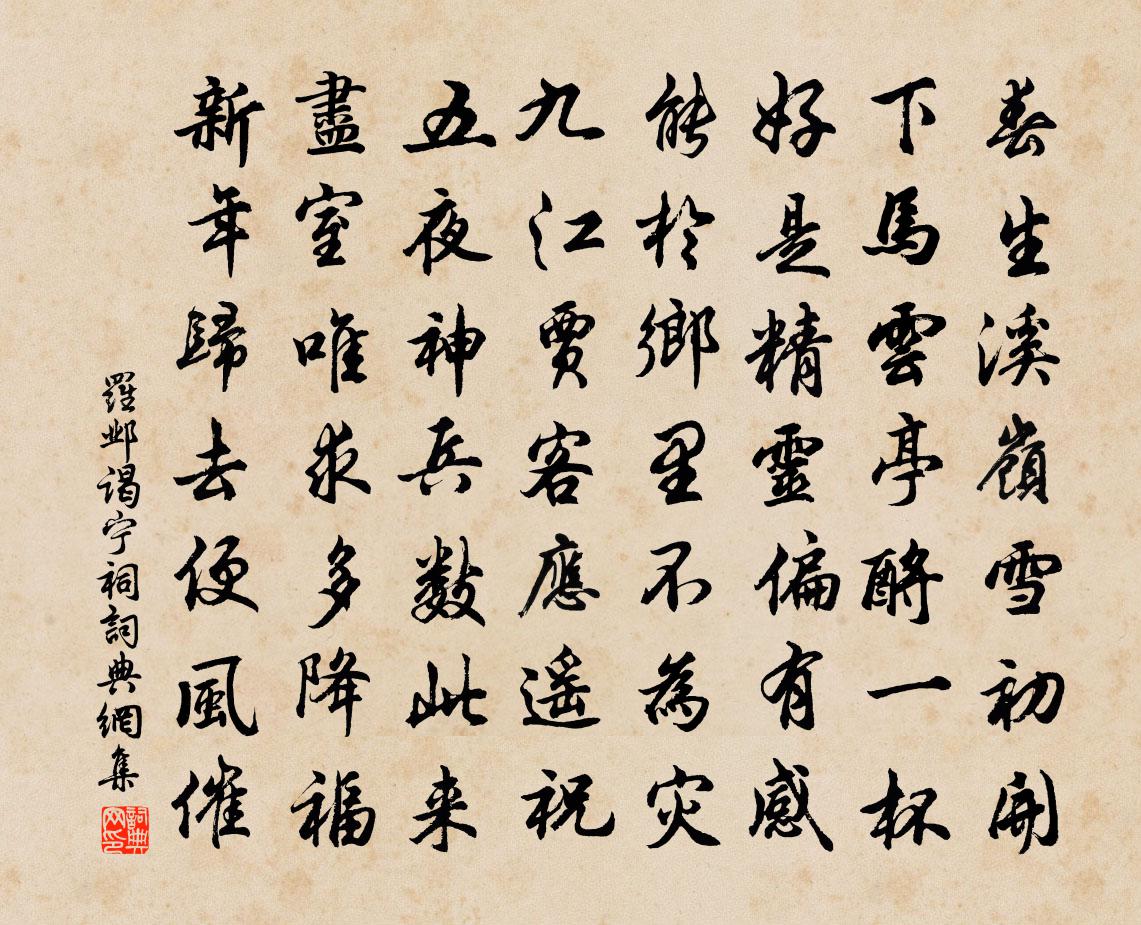 春生溪嶺雪初開
下馬雲亭酹一杯
好是精靈偏有感
能於鄉里不為災
九江賈客應遥祝
五夜神兵數此来
盡室唯求多降福
新年歸去便風催
羅邺谒宁祠詞典網集
詞典网印